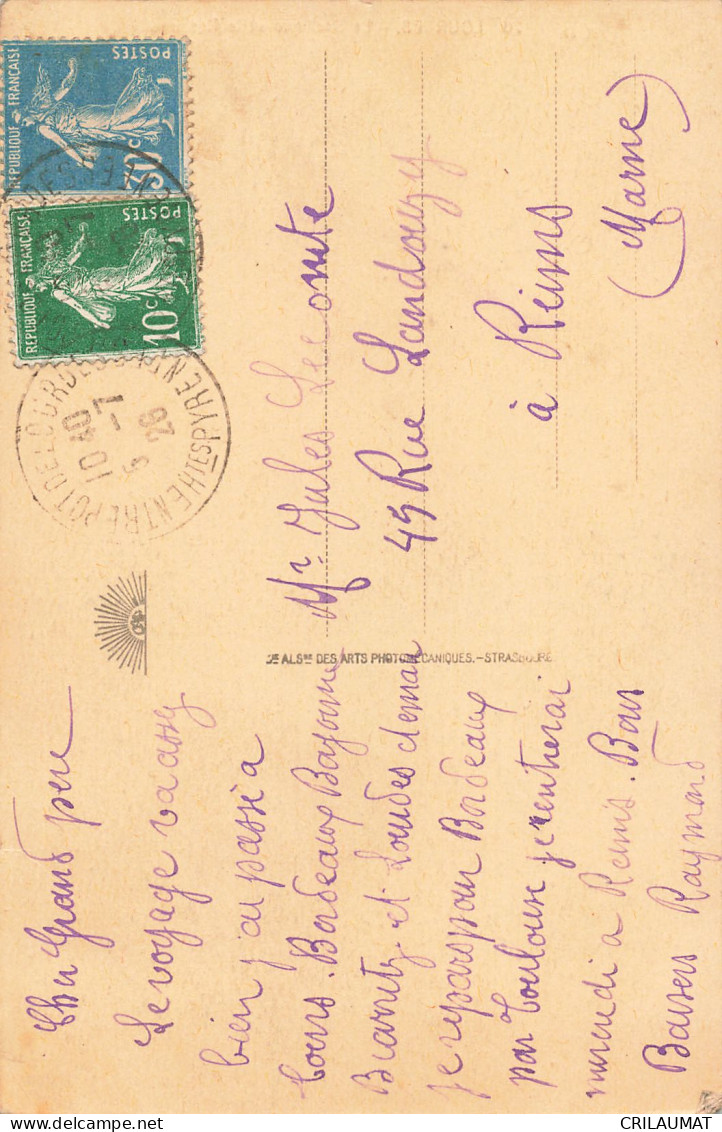 Cher Grand père
Le voyage va assez
bien j'ai passé a
Tours. Bordeaux Bayonne
Biarritz et Lourdes demain
je repars pour Bordeaux
par Toulouse je rentrerai
mercredi a Reims. Bons
Baisers Raymond
Mr Jules Lecomte
49 Rue Landouzy
à Reims
(Marne)
CIE ALSNE DES ARTS PHOTOMÉCANIQUES.—STRASBOURG
REPUBLIQUE FRANÇAISE
POSTES
30c
REPUBLIQUE FRANÇAISE
POSTES
10c
ENTREPOT DE LOURDES
HTES PYRENEES
10 40
5 -7
26
CRILAUMAT